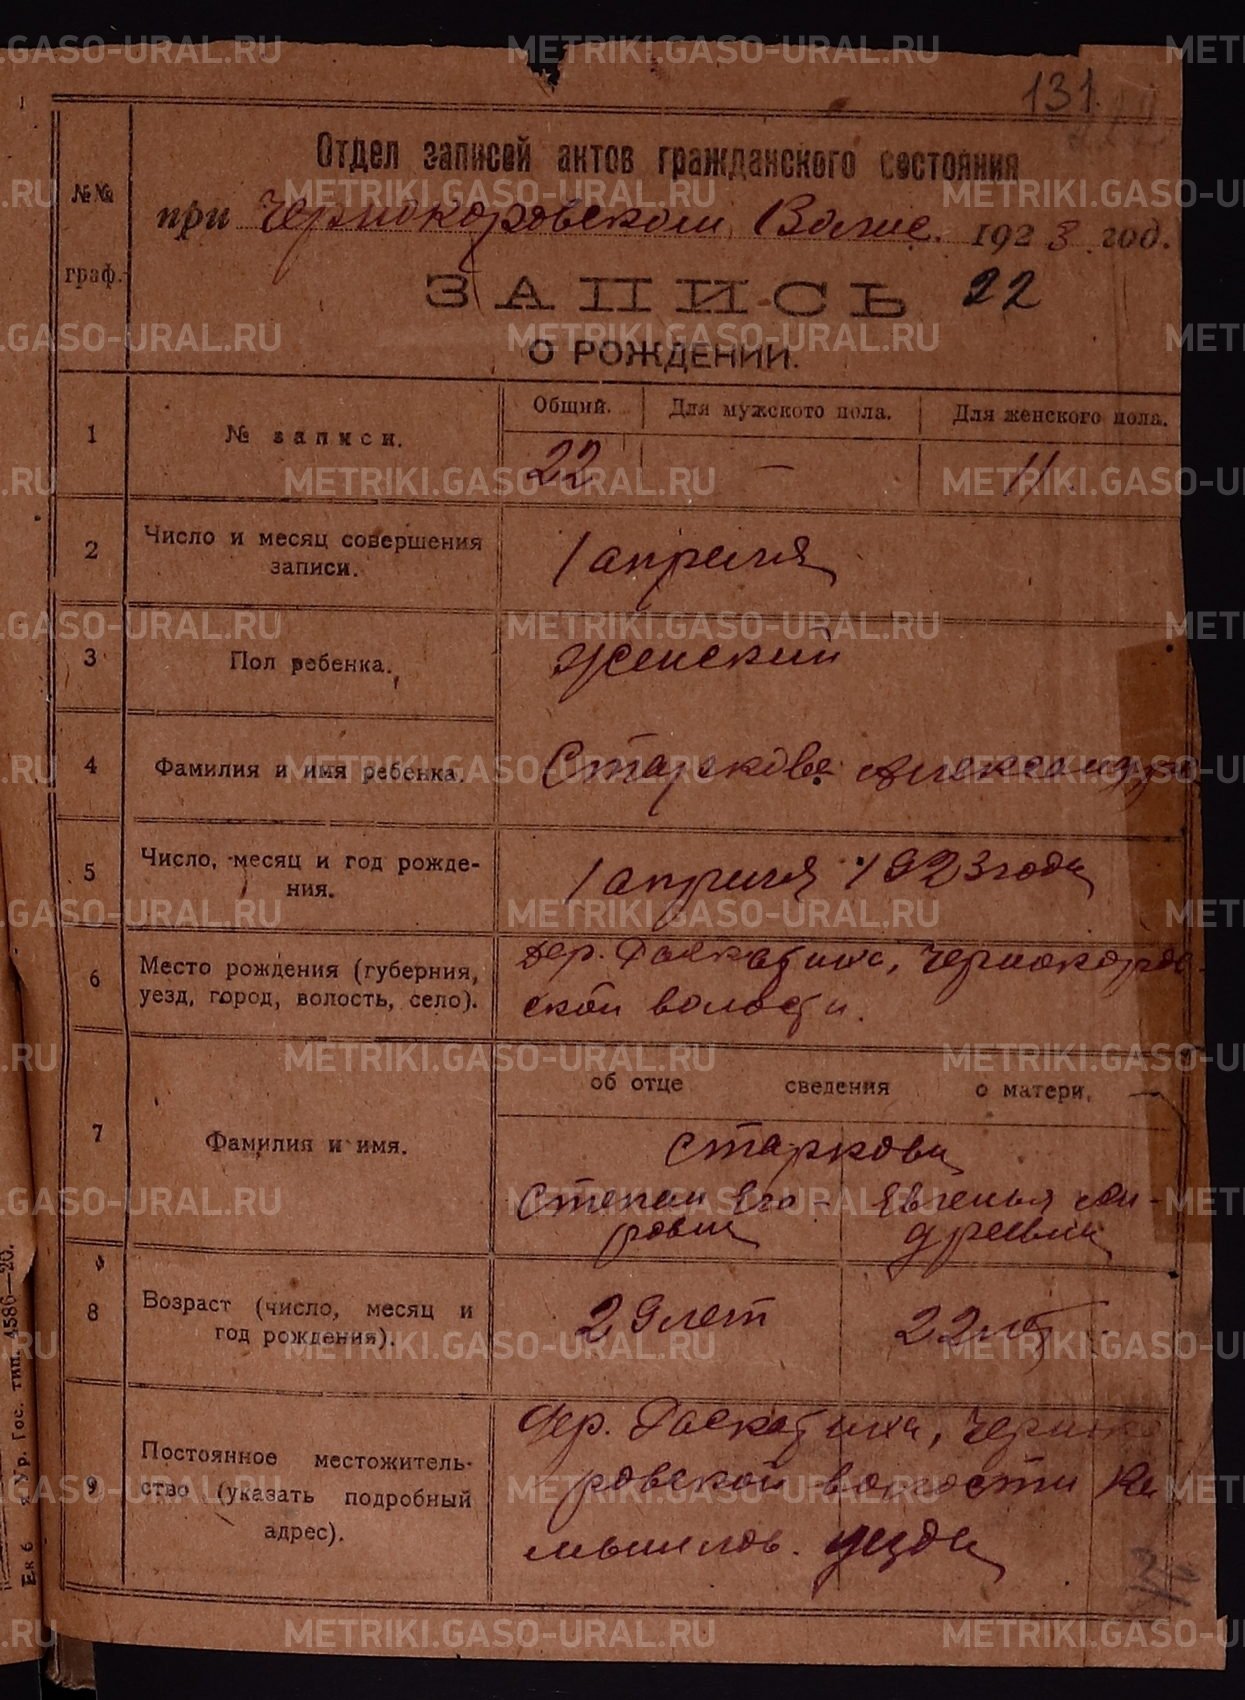 131.
Отдел записей актов гражданского состояния
№№ граф.
при Чернокоровском Волис. 1923 год.
ЗАПИСЬ 22
О РОЖДЕНИИ.
1 № записи.
Общий. Для мужского пола. Для женского пола.
22 — 11.
2 Число и месяц совершения
записи.
1 апреля
3 Пол ребенка.
женский
4 Фамилия и имя ребенка.
Старкова Александра
5 Число, месяц и год рожде-
ния.
1 апреля 1923 года
6 Место рождения (губерния,
уезд, город, волость, село).
дер. Раскатиха, Чернокоров-
ской волости.
7 Фамилия и имя.
об отце сведения о матери.
Старковы
Степан Его-
рович
Евгенья Ан-
дреевна
8 Возраст (число, месяц и
год рождения).
29 лет
22 лет
9 Постоянное местожитель-
ство (указать подробный
адрес).
Дер. Раскатиха, Черноко
ровской волости Ка
мышлов. уезда
Ур. Гос. тип. 4586—20.
METRIKI.GASO-URAL.RU